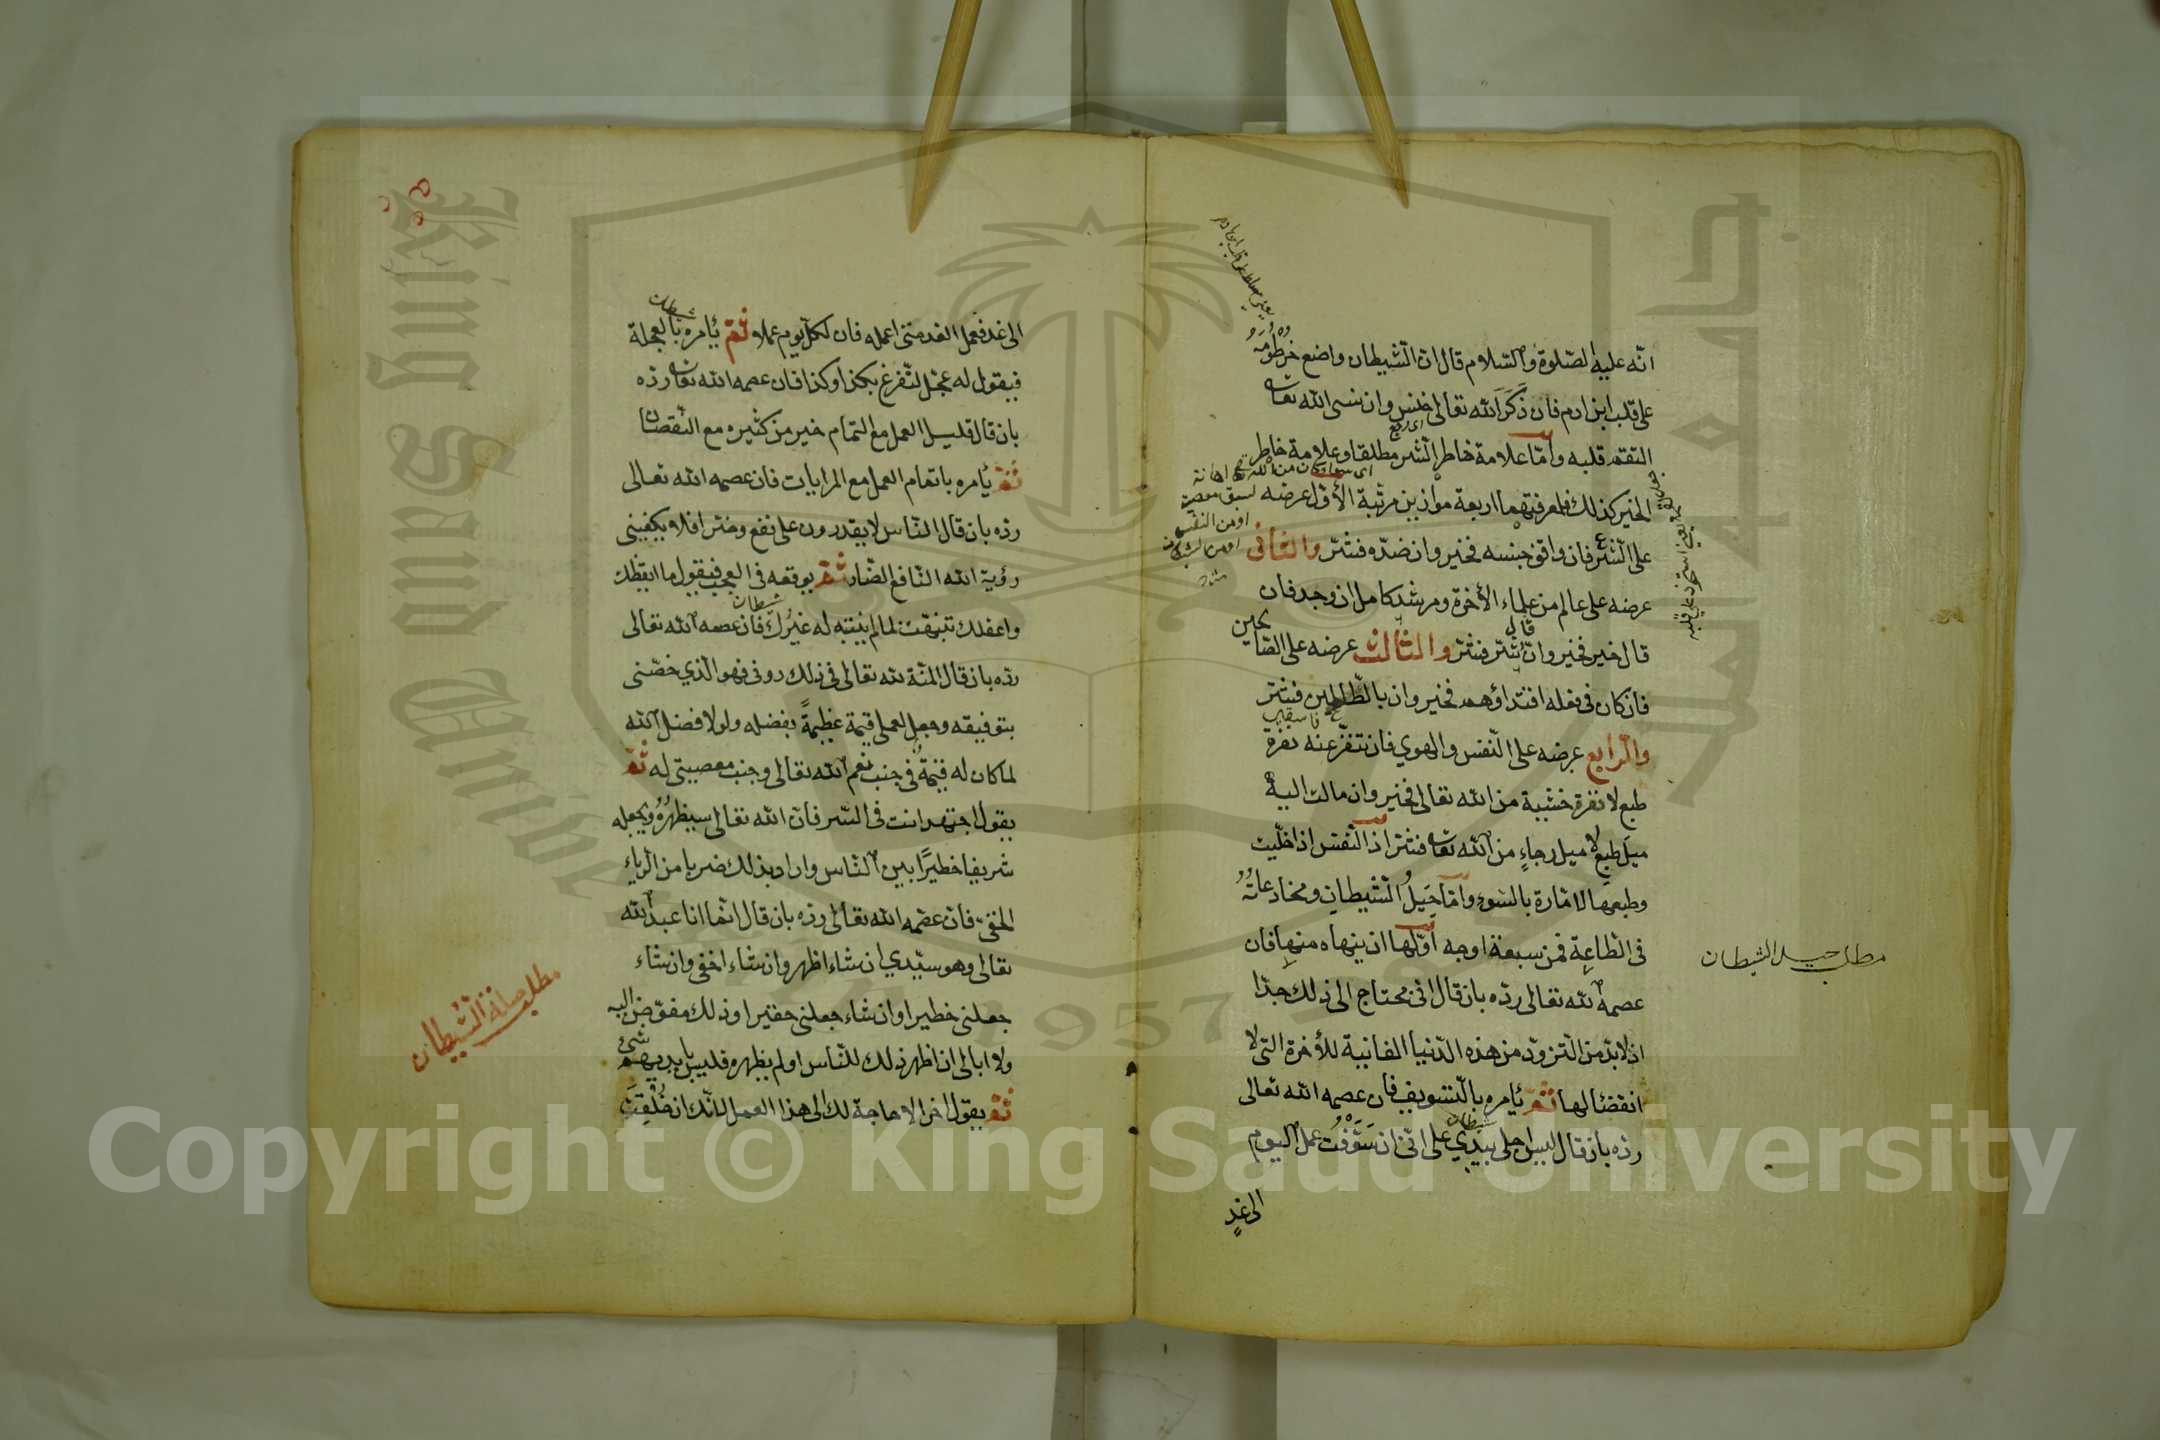 انّه عليه الصّلوة والسّلام قال انّ الشّيطان واضع خرطومه
على قلب ابن ادم فان ذكر الله تعالى خنس وان نسى الله تعالى
التقم قلبه وامّا علامة خاطر الشّر مطلقا وعلامة خاطر
الخير كذلك فلمعرفتهما اربعة موازين مرتبة الأوّل عرضه
على الشّرع فان وافق جنسه فخير وان ضدّه فشرّ والثانى
عرضه على عالم من علماء الأخرة ومرشد كامل ان وجد فان
قال خير فخير وان قال شرّ فشرّ والثالث عرضه على الصّالحين
فان كان فى فعله اقتداؤهم فخير وان بالطّالحين فشرّ
والرّابع عرضه على النّفس والهوي فان تنفّر عنه نفرة
طبع لا نفرة خشية من الله تعالى فخير وان مالت اليه
ميل طبع لا ميل رجاء من الله تعالى فشرّ اذ النّفس اذا خلّيت
وطبعها لامّارة بالسّوء وامّا حيل الشّيطان ومخادعاته
فى الطّاعة فمن سبعة اوجه اوّلها ان ينهاه منها فان
عصمه الله تعالى ردّه بان قال انّى محتاج الى ذلك جدّا
اذ لا بدّ من التزوّد من هذه الدّنيا الفانية للأخرة التى لا
انقضا لها ثمّ يأمره بالتّسويف فان عصمه الله تعالى
ردّه بان قال ليس اجلى بيدي على انّى ان سوّفت عمل اليوم
الى غد
مطلب حيل الشيطان
يعنى مسلط على قلب ابن ادم
شيطان
الى غد فعمل الغد متى اعمله فان لكلّ يوم عملا ثمّ يأمره بالعجلة
فيقول له عجّل لتفرغ بكذا وكذا فان عصمه الله تعالى ردّه
بان قال قليل العمل مع التمام خير من كثيره مع النّقصان
ثمّ يأمره باتمام العمل مع المرايات فان عصمه الله تعالى
ردّه بان قال النّاس لا يقدرون على نفع وضرّ افلا يكفينى
رؤية الله النّافع الضّار ثمّ يوقعه فى العجب فيقول ما ايقظك
واعقلك تنبّهت لما لم ينتبه له غيرك فان عصمه الله تعالى
ردّه بان قال المنّة لله تعالى فى ذلك دونى فهو الّذي خصّنى
بتوفيقه وجعل لعملى قيمة عظيمةً بفضله ولولا فضل الله
لما كان له قيمة فى جنب نعم الله تعالى وجنب معصيتى له ثمّ
يقول اجتهد انت فى السّر فانّ الله تعالى سيظهره ويجعله
شريفا خطيرًا بين النّاس واراد بذلك ضربا من الرّياء
الخفىّ فان عصمه الله تعالى ردّه بان قال انّما انا عبد الله
تعالى وهو سيّدي ان شاء اظهر وان شاء اخفى وان شاء
جعلنى خطيرا وان شاء جعلنى حقيرا وذلك مفوّض اليه
ولا ابالى ان اظهر ذلك للنّاس او لم يظهره فليس بايديهم شئ
ثمّ يقول اخرا لا حاجة لك الى هذا العمل لانّك ان خلقت
شيطان
شيطان
Copyright © King Saud University
King Saud University
1957